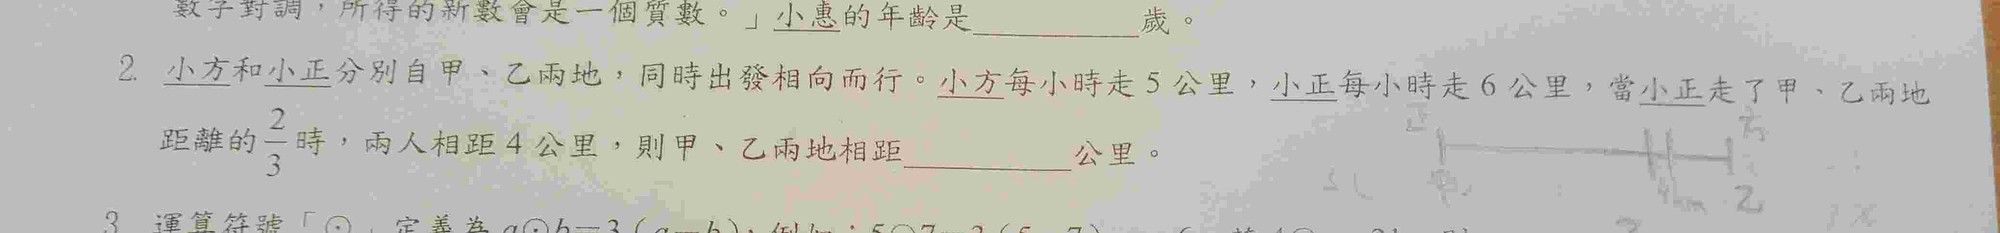 數字對調，所得的新數會是一個質數。」小惠的年齡是__________歲。
2. 小方和小正分別自甲、乙兩地，同時出發相向而行。小方每小時走 5 公里，小正每小時走 6 公里，當小正走了甲、乙兩地
距離的 2/3 時，兩人相距 4 公里，則甲、乙兩地相距__________公里。
正 方
甲 4km 乙
3. 運算符號「⊙」定義為 a⊙b=3(a-b)，例如：5⊙7=3(5-7)